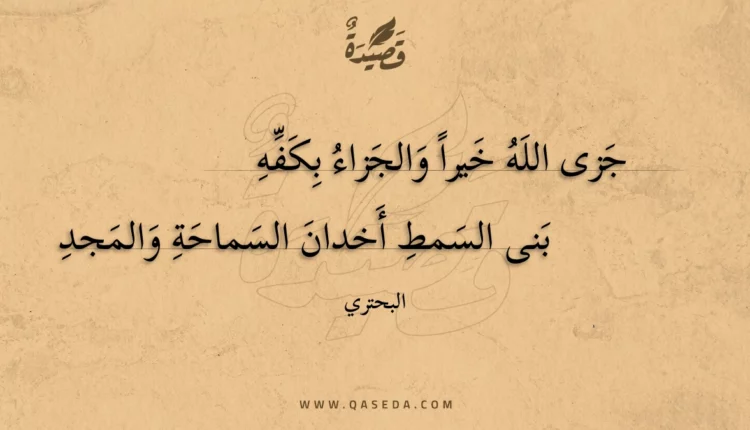 قَصِيْدَةٌ
جَزى اللَهُ خَيراً وَالجَزاءُ بِكَفِّهِ
بَنى السَمطِ أَخدانَ السَماحَةِ وَالمَجدِ
البحتري
WWW.QASEDA.COM